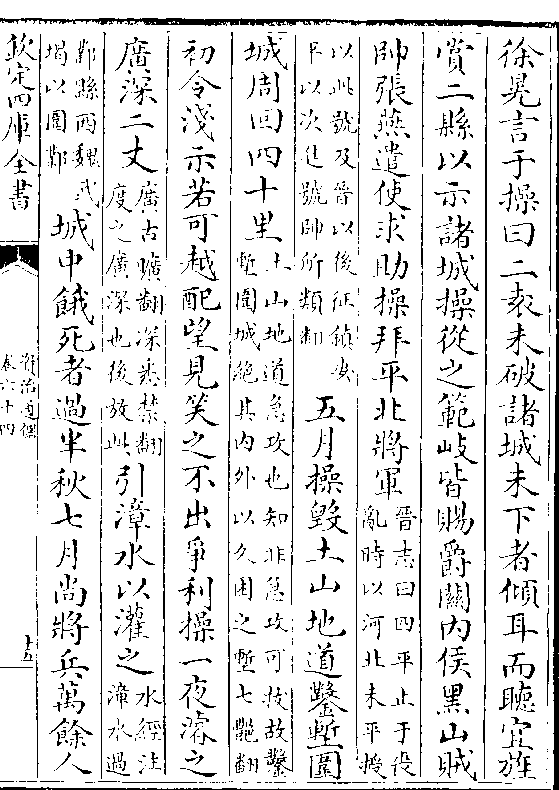 徐晃言于操曰二袁未破諸城未下者傾耳而聽宜旌
賞二縣以示諸城操從之範岐皆賜爵關内侯黑山賊
帥張燕遣使求助操拜平北將軍
晉志曰四平止于
亂時以河北未平
以此號及晉以後征鎮安
平以次進號帥所類翻
五月操毁土山地道鑿塹圍
城周回四十里
土山地道急攻也知非急攻可拔故鑿
塹圍城絶其内外以久困之塹七艷翻
初令淺示若可越配望見笑之不出爭利操一夜濬之
廣深二丈
廣古曠翻深悉禁翻
度之廣深也後放此
引漳水以灌之
水經注
漳水過
鄴縣西魏武
堨以圍鄴
城中餓死者過半秋七月尚將兵萬餘人
欽定四庫全書
資治通鑑
卷六十四
十五